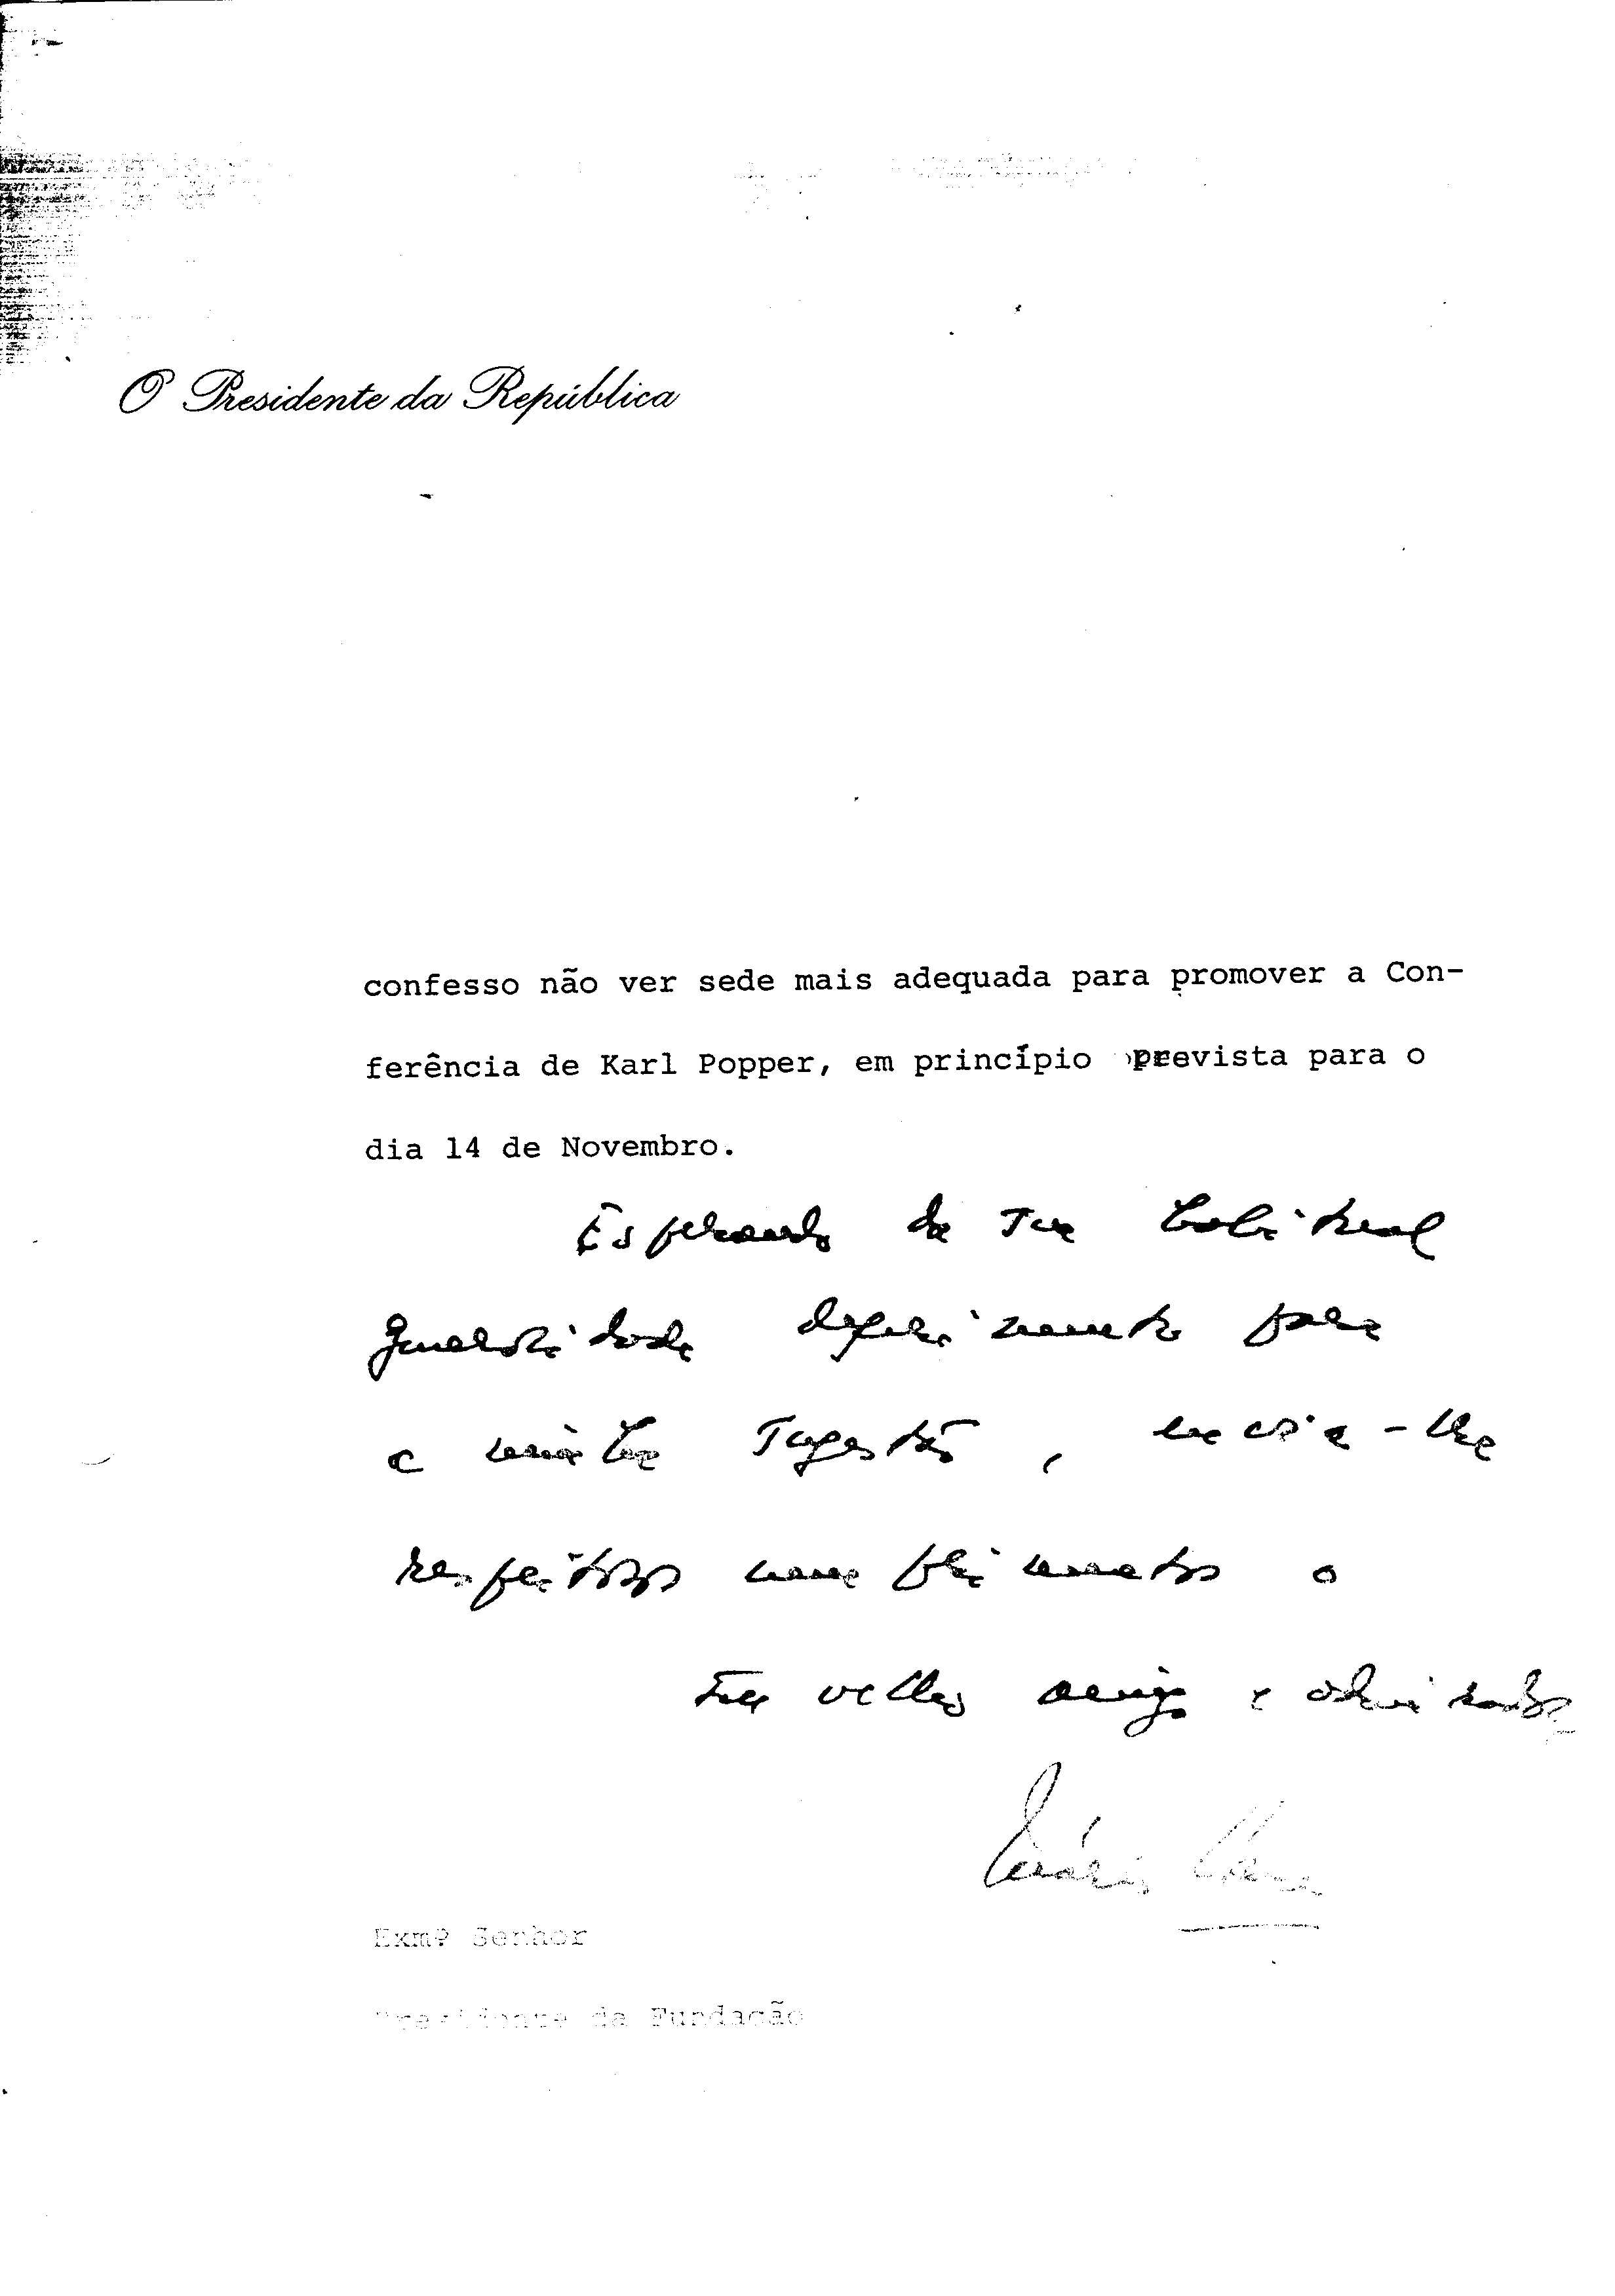 O Presidente da República
confesso não ver sede mais adequada para promover a Con-
ferência de Karl Popper, em princípio prevista para o
dia 14 de Novembro.
Esperando da sua habitual
generosidade deferimento para
a minha sugestão, envia-lhe
respeitosos cumprimentos o
seu velho amigo e admirador
Mário Soares
Exmº Senhor
Presidente da Fundação